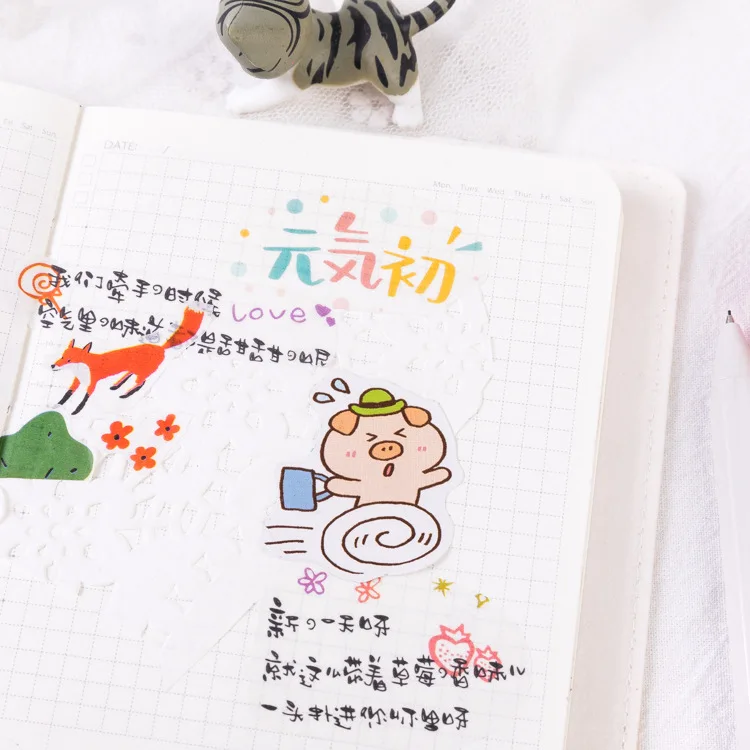 DATE: /
Mon. Tues. Wed. Thur. Fri. Sat. Sun.
元気初
我们牵手の时候
Love
空气里の味道 是甜甜の呢
新の一天呀
就这么带着草莓の香味儿
一头扎进你心里呀